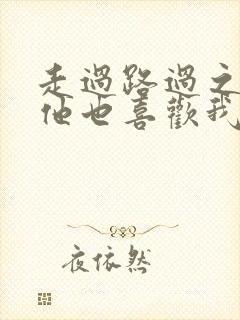 走過路過之
他也喜歡我
夜依然